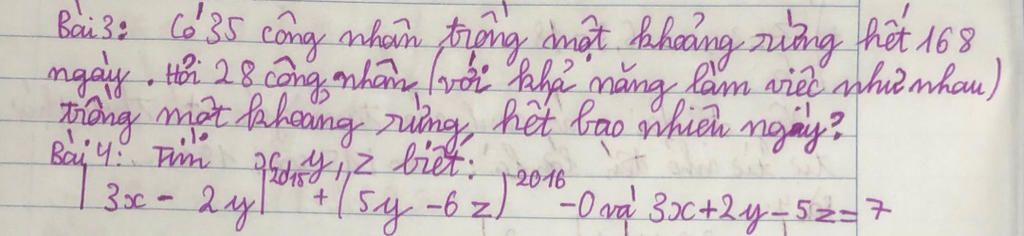 Bài 3: Có 35 công nhân trồng một khoảng rừng hết 168
ngày. Hỏi 28 công nhân (với khả năng làm việc như nhau)
trồng một khoảng rừng hết bao nhiên ngày?
Bài 4: Tìm x, y, z biết:
|3x - 2y|²⁰¹⁵ + (5y - 6z)²⁰¹⁶ - 0 và 3x + 2y - 5z = 7